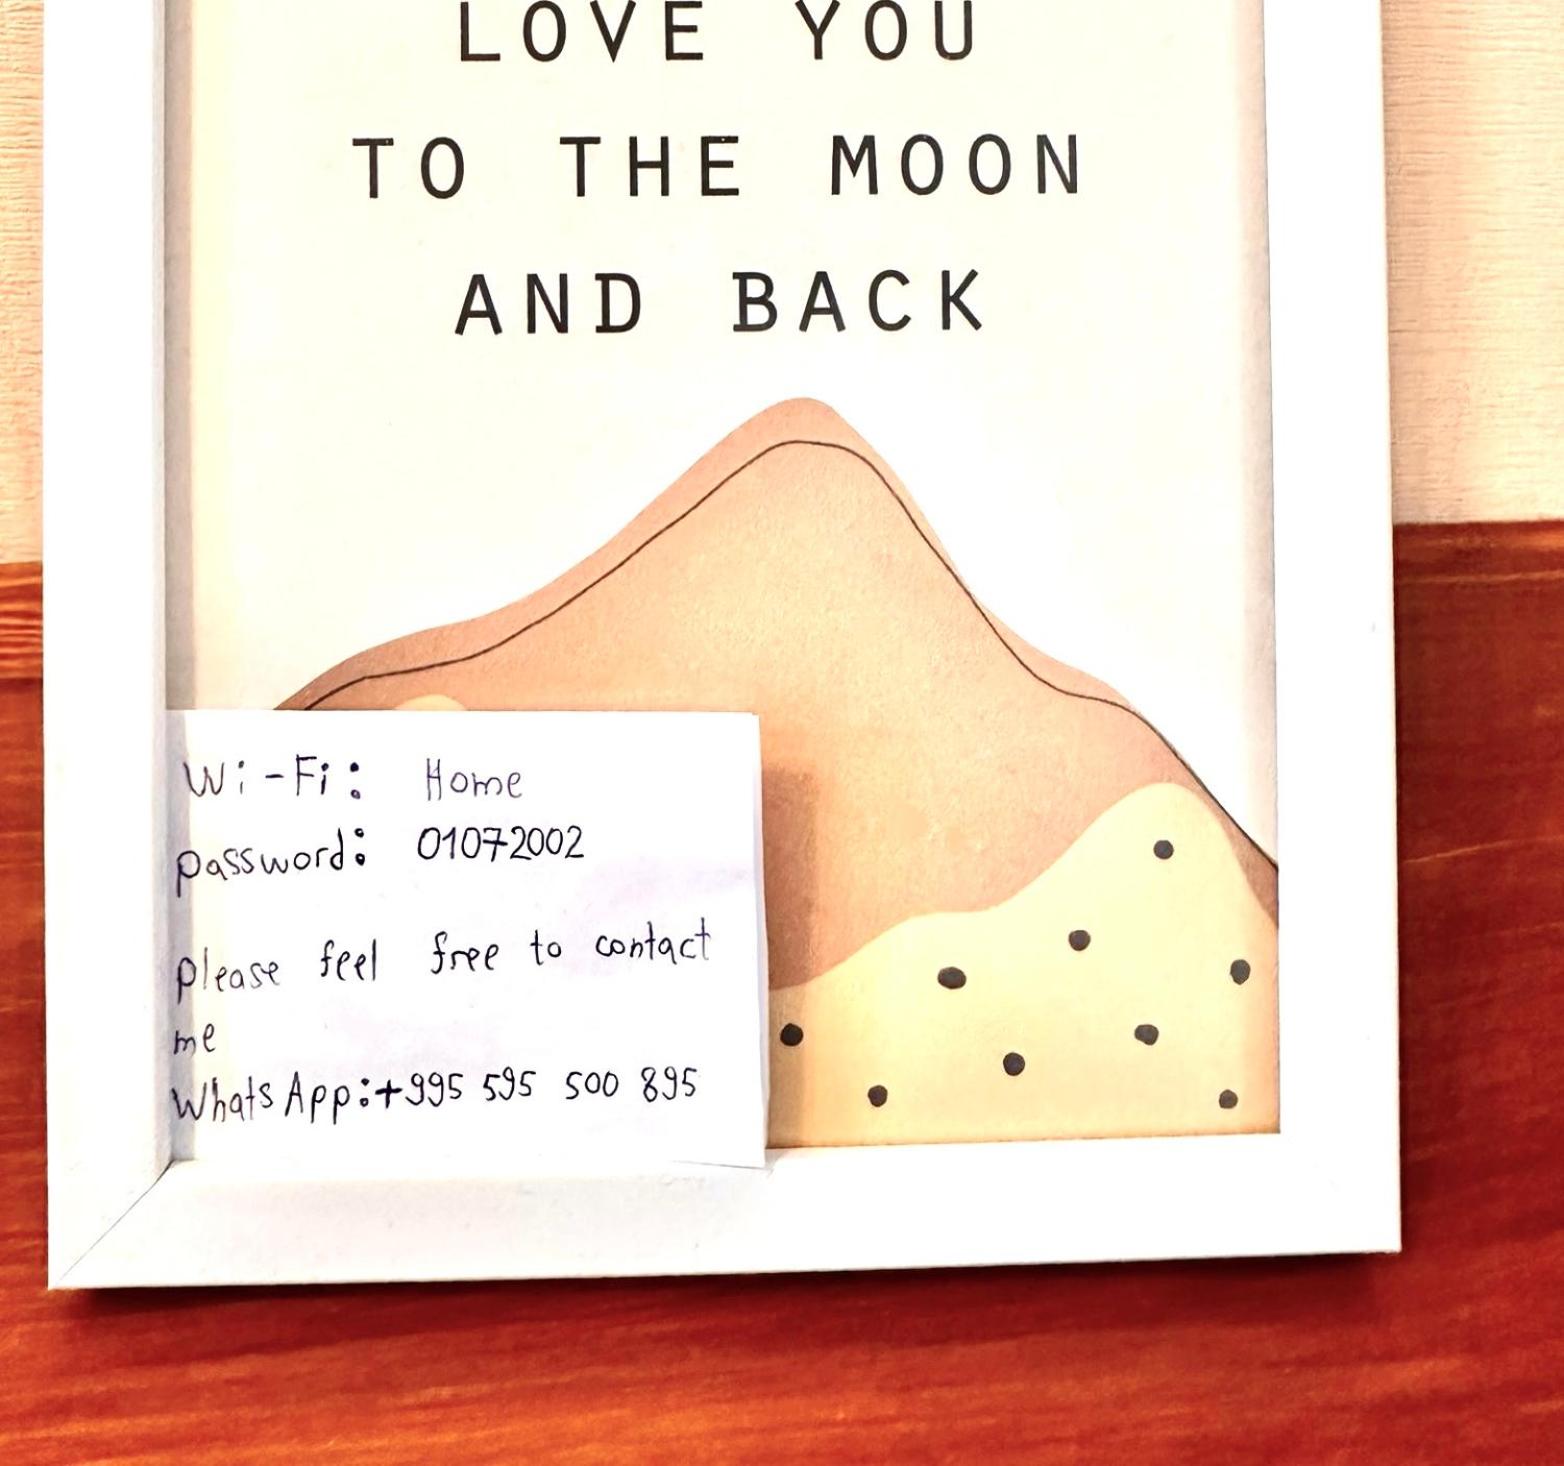 LOVE YOU
TO THE MOON
AND BACK
Wi-Fi: Home
password: 01072002
please feel free to contact
me
WhatsApp:+995 595 500 895